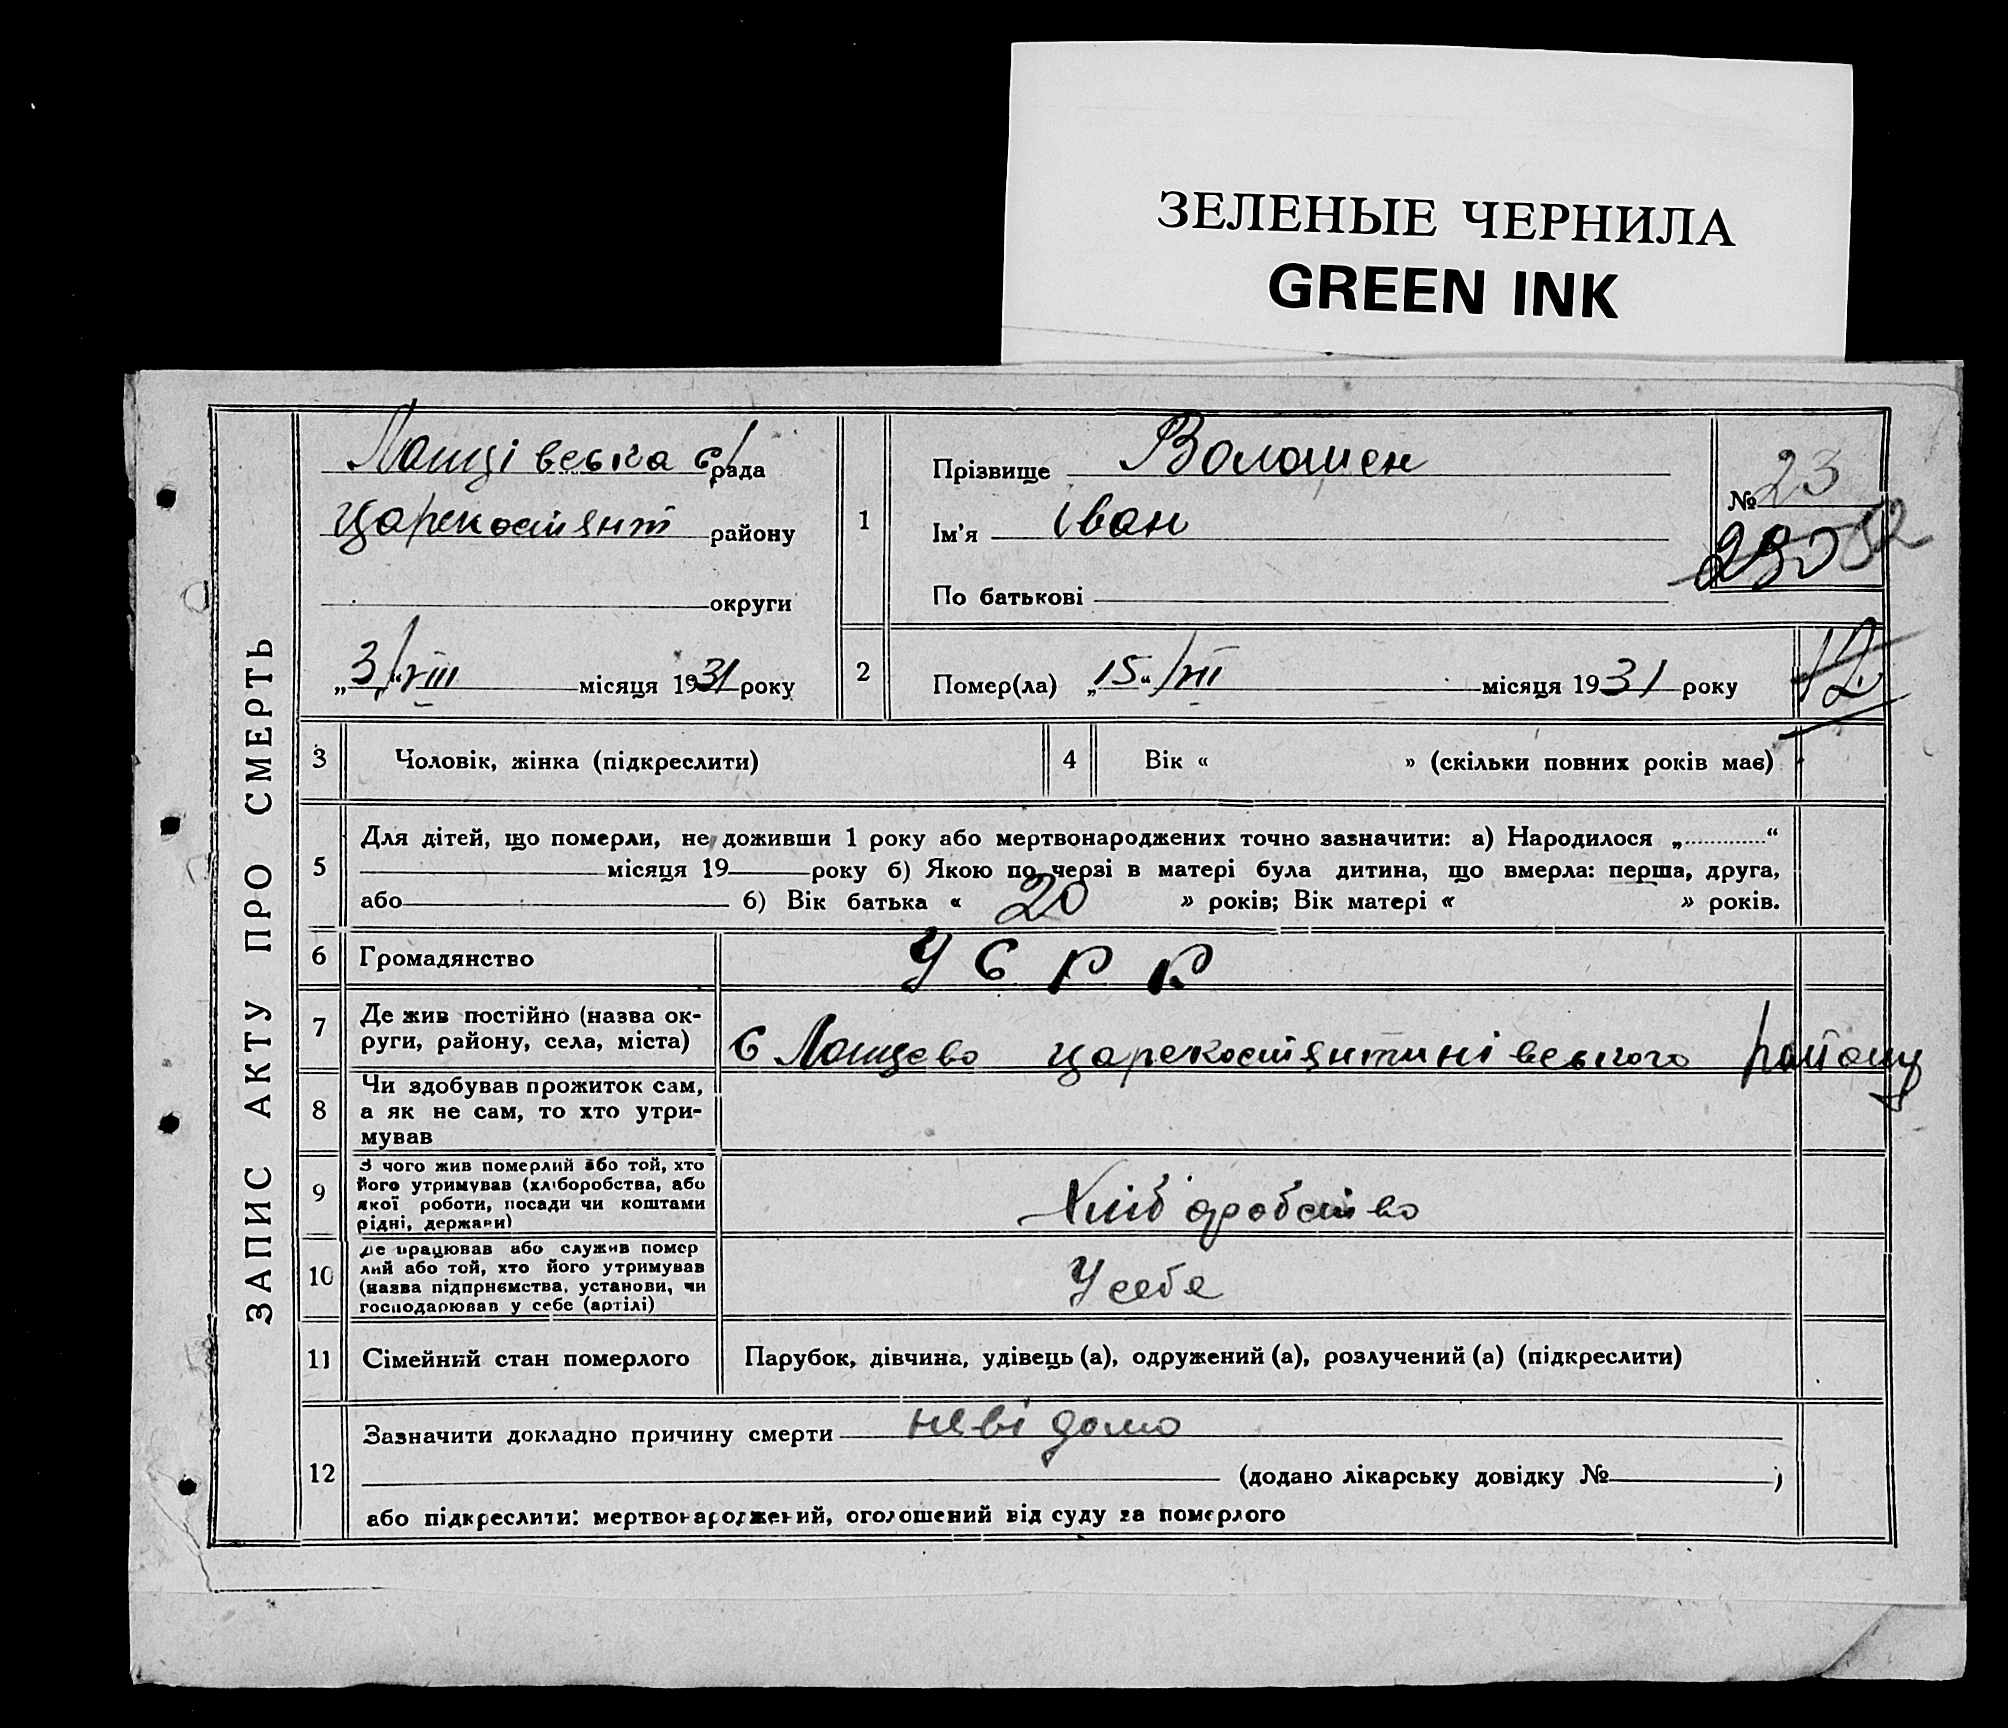 ЗЕЛЕНЫЕ ЧЕРНИЛА
GREEN INK
ЗАПИС АКТУ ПРО СМЕРТЬ
Лощівська с/рада
Царекостянт району
округи
„3/“VIII місяця 1931 року
1
Прізвище Волошен
Ім'я Іван
По батькові
№ 23
2
Помер(ла) „15“/VII місяця 1931 року
12
3 Чоловік, жінка (підкреслити)
4 Вік « » (скільки повних років має)
5
Для дітей, що померли, не доживши 1 року або мертвонароджених точно зазначити: а) Народилося „............“
місяця 19 року б) Якою по черзі в матері була дитина, що вмерла: перша, друга,
або б) Вік батька « 20 » років; Вік матері « » років.
6 Громадянство УСРР
7 Де жив постійно (назва ок-
руги, району, села, міста) с Лощево Царекостянтинівського району
8 Чи здобував прожиток сам,
а як не сам, то хто утри-
мував
9 З чого жив померлий або той, хто
його утримував (хліборобства, або
якої роботи, посади чи коштами
рідні, держави)
Хліборобство
10 Де працював або служив помер
лий або той, хто його утримував
(назва підприємства, установи, чи
господарював у себе (артілі)
У себе
11 Сімейний стан померлого Парубок, дівчина, удівець (а), одружений (а), розлучений (а) (підкреслити)
12
Зазначити докладно причину смерти невідомо
(додано лікарську довідку № )
або підкреслити: мертвонароджений, оголошений від суду за померлого